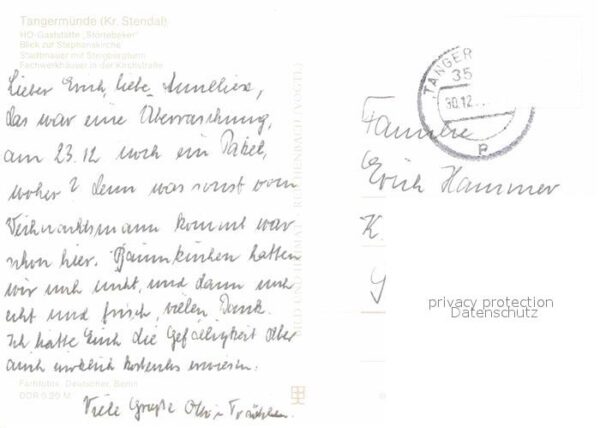 Tangermünde (Kr. Stendal)
HO-Gaststätte „Störtebeker"
Blick zur Stephanskirche
Stadtmauer mit Steigbergturm
Fachwerkhäuser in der Kirchstraße
Lieber Erich, liebe Anneliese,
das war eine Überraschung,
am 23.12 noch ein Paket,
woher? denn was sonst vom
Weihnachtsmann kommt war
schon hier. Baumkuchen hatten
wir noch nicht, und dann noch
echt und frisch, vielen Dank.
Ich hätte Euch die Gefälligkeit aber
auch wirklich kostenlos erwiesen.
Viele Grüße
Farbfotos: Deutscher, Berlin
DDR 0,20 M
BILD UND HEIMAT REICHENBACH (VOGTL)
TANGER
35
30.12.
P
Familie
Erich Hammer
K.
G
privacy protection
Datenschutz